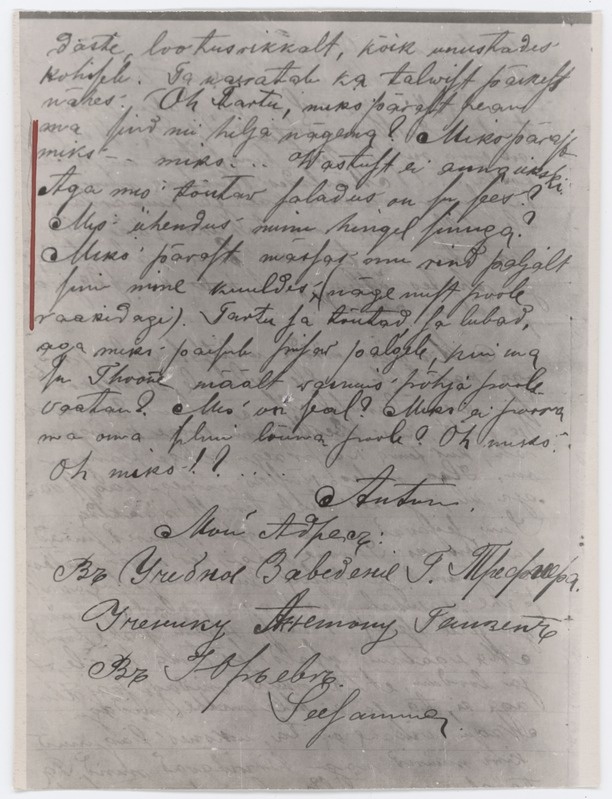 däste, lootusrikkalt, kõik unustades
kohisele. Ta karatab ka talwist päikest
nähes. Oh Tartu, miks pärast pean
ma sind nii hilja nägema? Miks pärast
miks -- miks ... Wastust ei anna ükski.
Aga mis tõutaw saladus on su sees?
Mis ühendus minu hingel sinuga?
Miks pärast mässas omu rind paljalt
sinu nime kuuldes, (nägemist poole
raasidagi). Tartu sa tõutad, sa lubad,
aga miks paisub pisar palgele, kui ma
su Thoone mäält warinis põhja poole
vaatan? Mis on seal? Miks ei pööra
ma oma silmi lõuna poole? Oh miks.
Oh miks!? ....
Anton.
Мой Адресъ:
Въ Учебное Заведенiе Г. Треффнера.
Ученику Антону Гансенъ
Въ Юрьевъ.